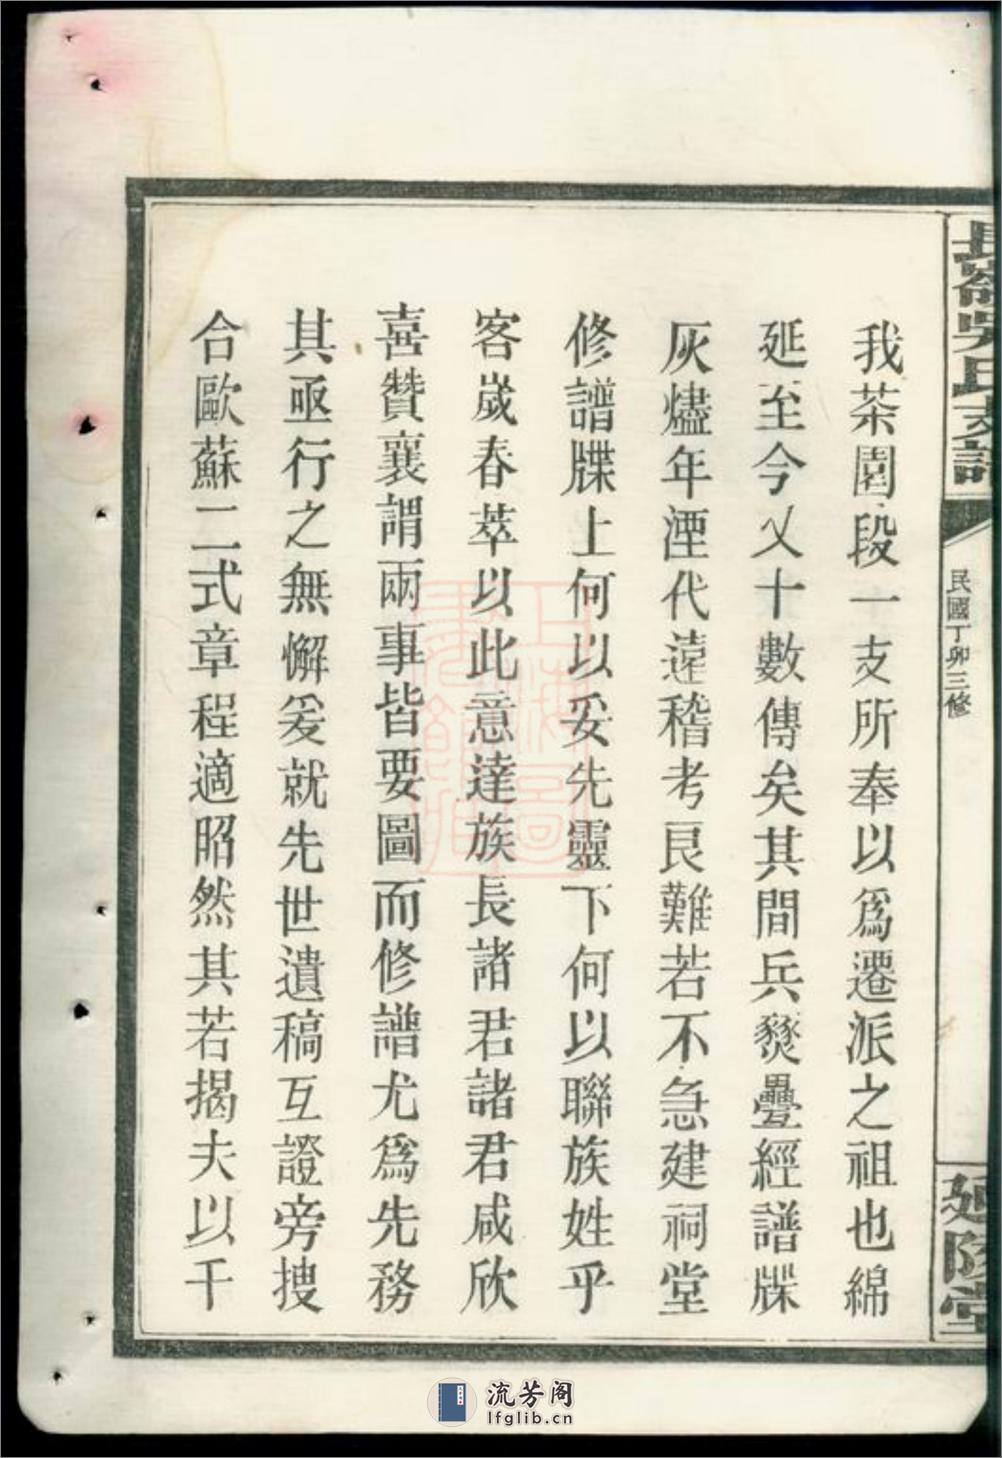 長嶺吳氏支譜
民國丁卯三修
延陵堂
我茶園段一支所奉以爲遷派之祖也綿
延至今乂十數傳矣其間兵燹疊經譜牒
灰燼年湮代遠稽考艮難若不急建祠堂
修譜牒上何以妥先靈下何以聯族姓乎
客嵗春萃以此意達族長諸君諸君咸欣
喜贊襄謂兩事皆要圖而修譜尤爲先務
其亟行之無懈爰就先世遺稿互證旁搜
合歐蘇二式章程適昭然其若揭夫以千
上海圖書館藏
流芳阁
lfglib.cn